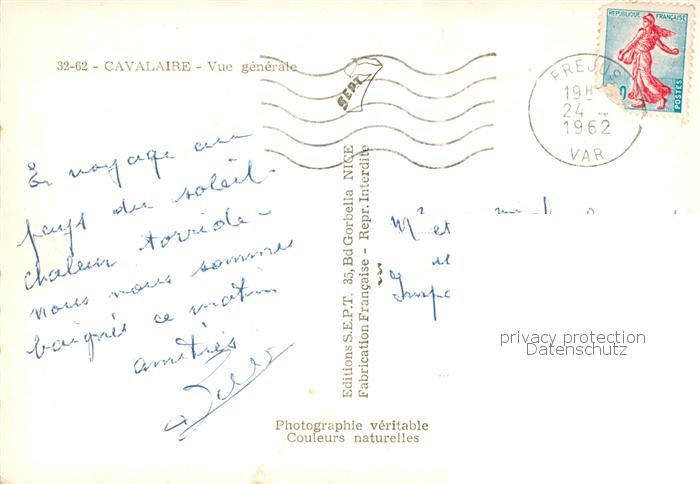 32-62 - CAVALAIRE - Vue générale
SEPT
REPUBLIQUE FRANÇAISE
POSTES
FREJUS
19H
24
1962
VAR
En voyage au
pays du soleil -
chaleur torride -
nous nous sommes
baignés ce matin
amitiés
Mr et
Editions S.E.P.T. 35, Bd Gorbella NICE
Fabrication Française - Repr. Interdite
privacy protection
Datenschutz
Photographie véritable
Couleurs naturelles